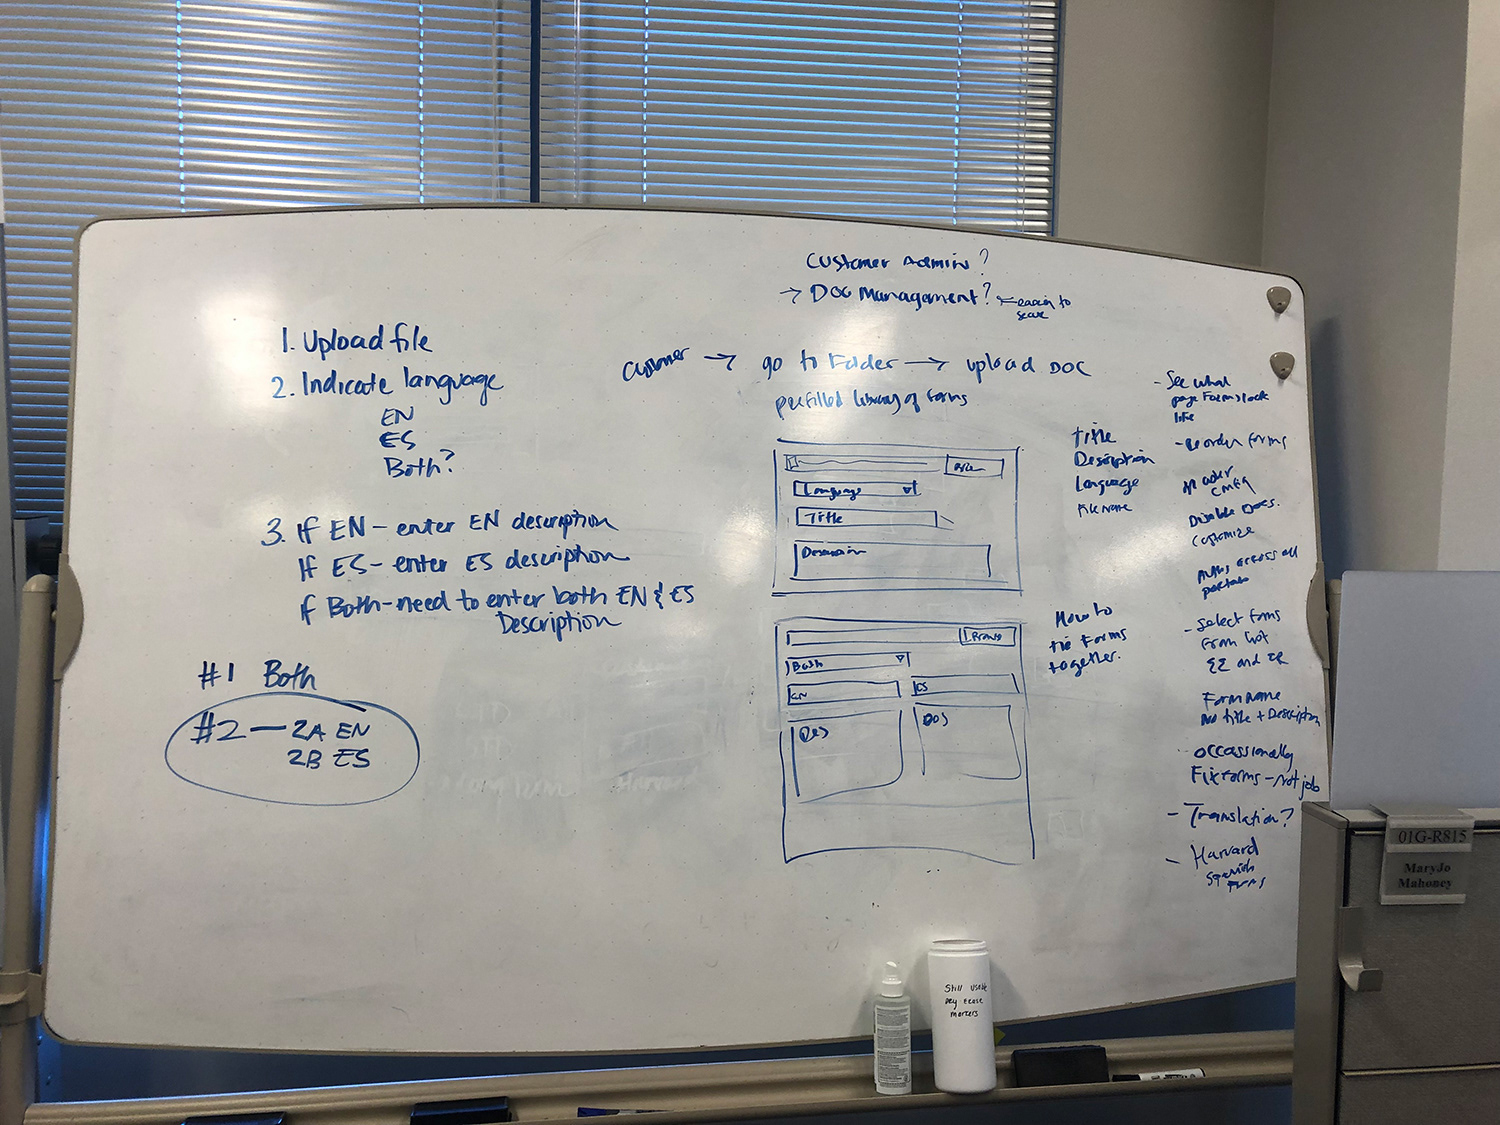 Customer Admins?
→ Doc Management? ← easier to
1. Upload file
2. Indicate language
EN
ES
Both?
3. If EN - enter EN description
If ES - enter ES description
If Both - need to enter both EN & ES
Description
#1 Both
#2 — 2A EN
2B ES
Customer → go to Folder → upload DOC
prefilled library of forms
Language
Title
Description
Both
Browse
EN
ES
Des
Des
Title
Description
Language
File name
How to
tie forms
together.
- See what
page forms look
like
- Reorder forms
Disable Docs.
customize
across all
- Select forms
from list
and
Form name
No title + Description
occassionally
Fix forms - not job
- Translation?
- Harvard
Spanish
forms
Still usable
Dry erase
markers
01G-R815
MaryJo
Mahoney